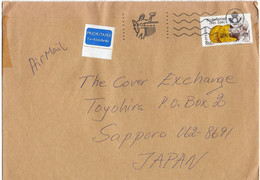 PRIORITAIRE
Air Mail
The Cover Exchange
Toyohira P.O. Box 2
Sapporo 062-8691
JAPAN